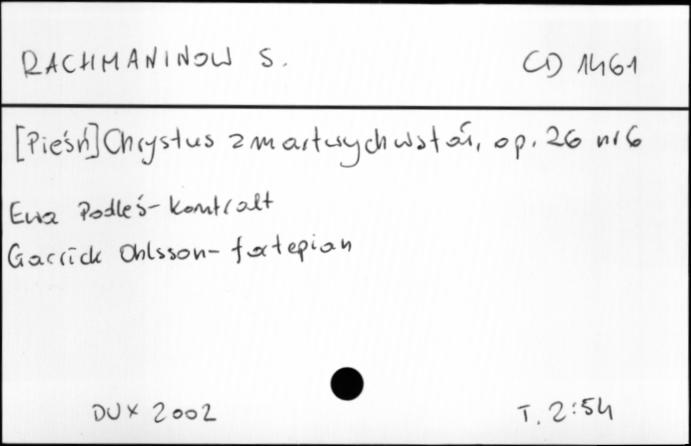 RACHMANINOW S. CD 1461
[Pieśń] Chrystus zmartwychwstał, op. 26 nr 6
Ewa Podleś - kontralt
Garrick Ohlsson - fortepian
DUX 2002 T. 2:54